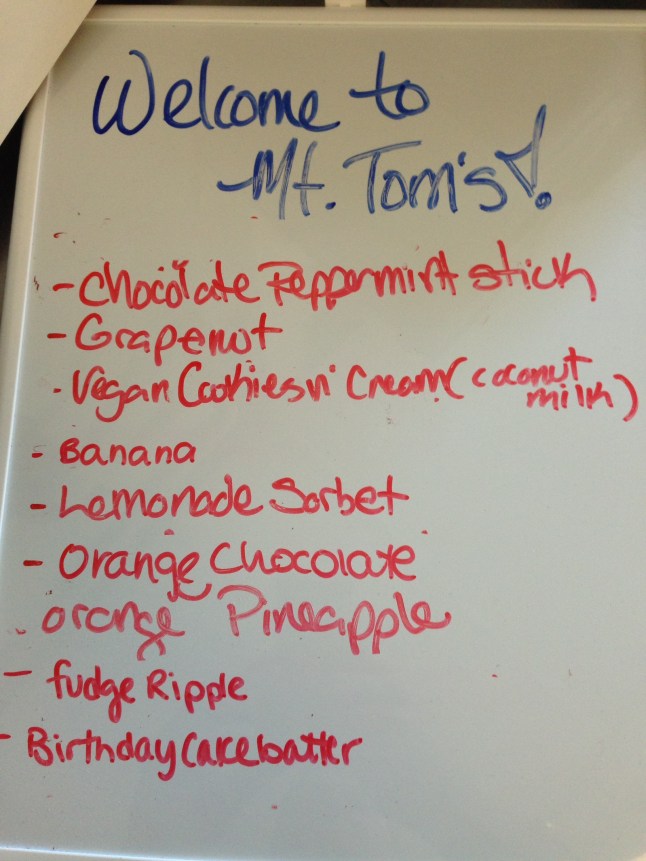 Welcome to
Mt. Tom's!
- Chocolate Peppermint stick
- Grapenut
- Vegan Cookies n' Cream (coconut
milk)
- Banana
- Lemonade Sorbet
- Orange Chocolate
orange Pineapple
- fudge Ripple
- Birthday Cake batter